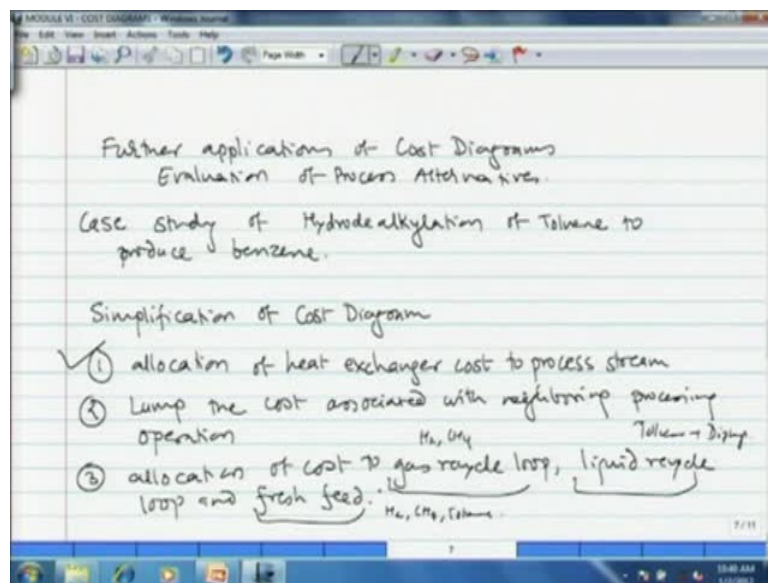 MODULE VI - COST DIAGRAMS - Windows Journal
File Edit View Insert Actions Tools Help
Page Width
Further applications of Cost Diagrams
Evaluation of Process Alternatives.
Case study of Hydrodealkylation of Toluene to
produce benzene.
Simplification of Cost Diagram
① allocation of heat exchanger cost to process stream
② Lump the cost associated with neighboring processing
operation
H2, CH4
Toluene +
③ allocation of cost to gas recycle loop, liquid recycle
loop and fresh feed.
H2, CH4, Toluene.
7/11
7
10:40 AM